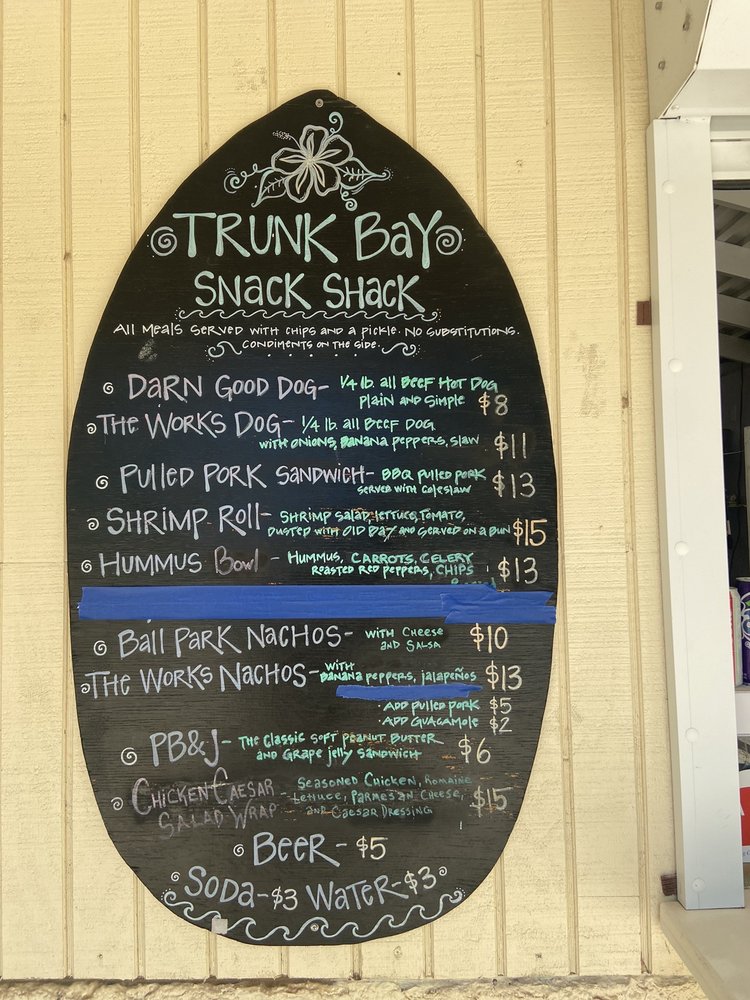 TRUNK BAY
SNACK SHACK
All Meals served with chips and a pickle. No substitutions.
Condiments on the side.
Darn Good Dog- 1/4 lb. all Beef Hot Dog
Plain and Simple $8
The Works Dog- 1/4 lb. all Beef Dog
with onions, Banana peppers, slaw $11
Pulled Pork Sandwich- BBQ pulled pork
served with coleslaw $13
Shrimp Roll- Shrimp salad, lettuce, tomato,
Dusted with Old Bay and served on a bun $15
Hummus Bowl - Hummus, carrots, celery
Roasted red peppers, chips $13
Ball Park Nachos- with cheese
and salsa $10
The Works Nachos- with
Banana peppers, jalapeños $13
·Add pulled pork $5
·Add guacamole $2
PB&J- The classic soft peanut butter
and grape jelly sandwich $6
Chicken Caesar
Salad Wrap - Seasoned Chicken, Romaine
Lettuce, Parmesan Cheese,
and Caesar Dressing $15
Beer- $5
Soda-$3 Water-$3